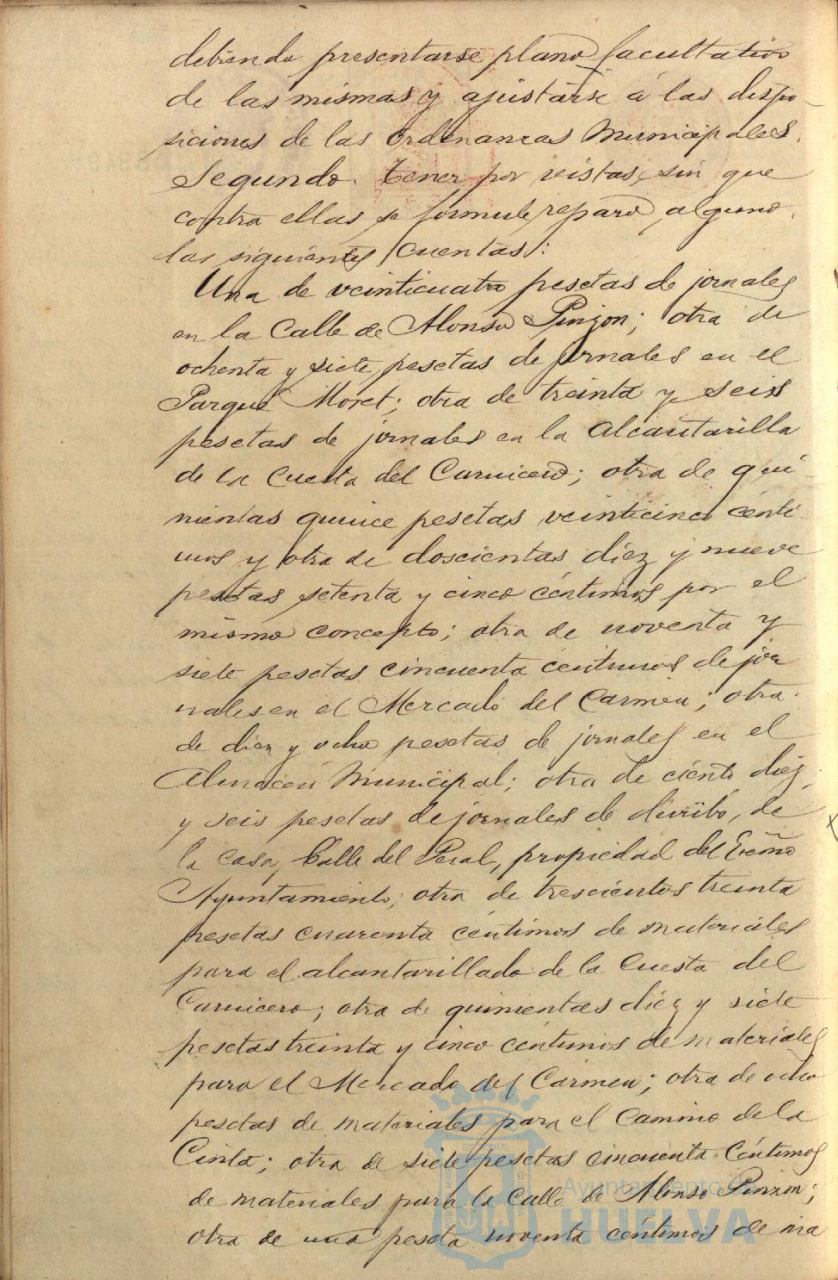 debiendo presentarse plano facultativo
de las mismas y ajustarse á las dispo-
siciones de las Ordenanzas Municipales.
Segundo. Tener por vistas, sin que
contra ellas se formule reparo, alguno,
las siguientes cuentas:
Una de veinticuatro pesetas de jornales
en la Calle de Alonso Pinzon; otra de
ochenta y siete pesetas de jornales en el
Parque Moret; otra de treinta y seis
pesetas de jornales en la Alcantarilla
de la Cuesta del Carnicero; otra de qui-
nientas quince pesetas veinticinco cénti-
mos y otra de doscientas diez y nueve
pesetas setenta y cinco céntimos por el
mismo concepto; otra de noventa y
siete pesetas cincuenta centimos de jor
nales en el Mercado del Carmen; otra
de diez y ocho pesetas de jornales en el
Almacen Municipal; otra de ciento diez
y seis pesetas de jornales de derribo, de
la casa, Calle del Peral, propiedad del Excmo
Ayuntamiento; otra de trescientos treinta
pesetas cuarenta céntimos de materiales
para el alcantarillado de la Cuesta del
Carnicero; otra de quinientas diez y siete
pesetas treinta y cinco céntimos de materiales
para el Mercado del Cármen; otra de ocho
pesetas de materiales para el Camino de la
Cinta; otra de siete pesetas cincuenta céntimos
de materiales para la Calle de Alonso Pinzon;
otra de una peseta noventa centimos de ma
Ayuntamiento de
HUELVA